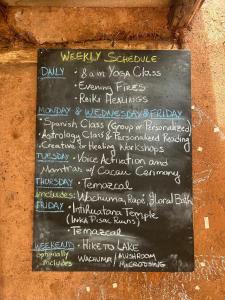 WEEKLY SCHEDULE
DAILY • 8am YOGA CLASS
• Evening FIRES
• Reiki HEALINGS
MONDAY & WEDNESDAY & FRIDAY
• Spanish Class (Group or Personalized)
• Astrology Class & Personalized Reading
• Creative or Healing Workshops
TUESDAY • Voice Activation and
Mantras w/ Cacao Ceremony
THURSDAY • Temazcal
includes: Wachuma, Rapé, Floral Bath
FRIDAY • Intihuatana Temple
(INKA Pisac RUINS)
• Temazcal
WEEKEND • HIKE TO LAKE
optionally includes WACHUMA / MUSHROOM
MICRODOSING